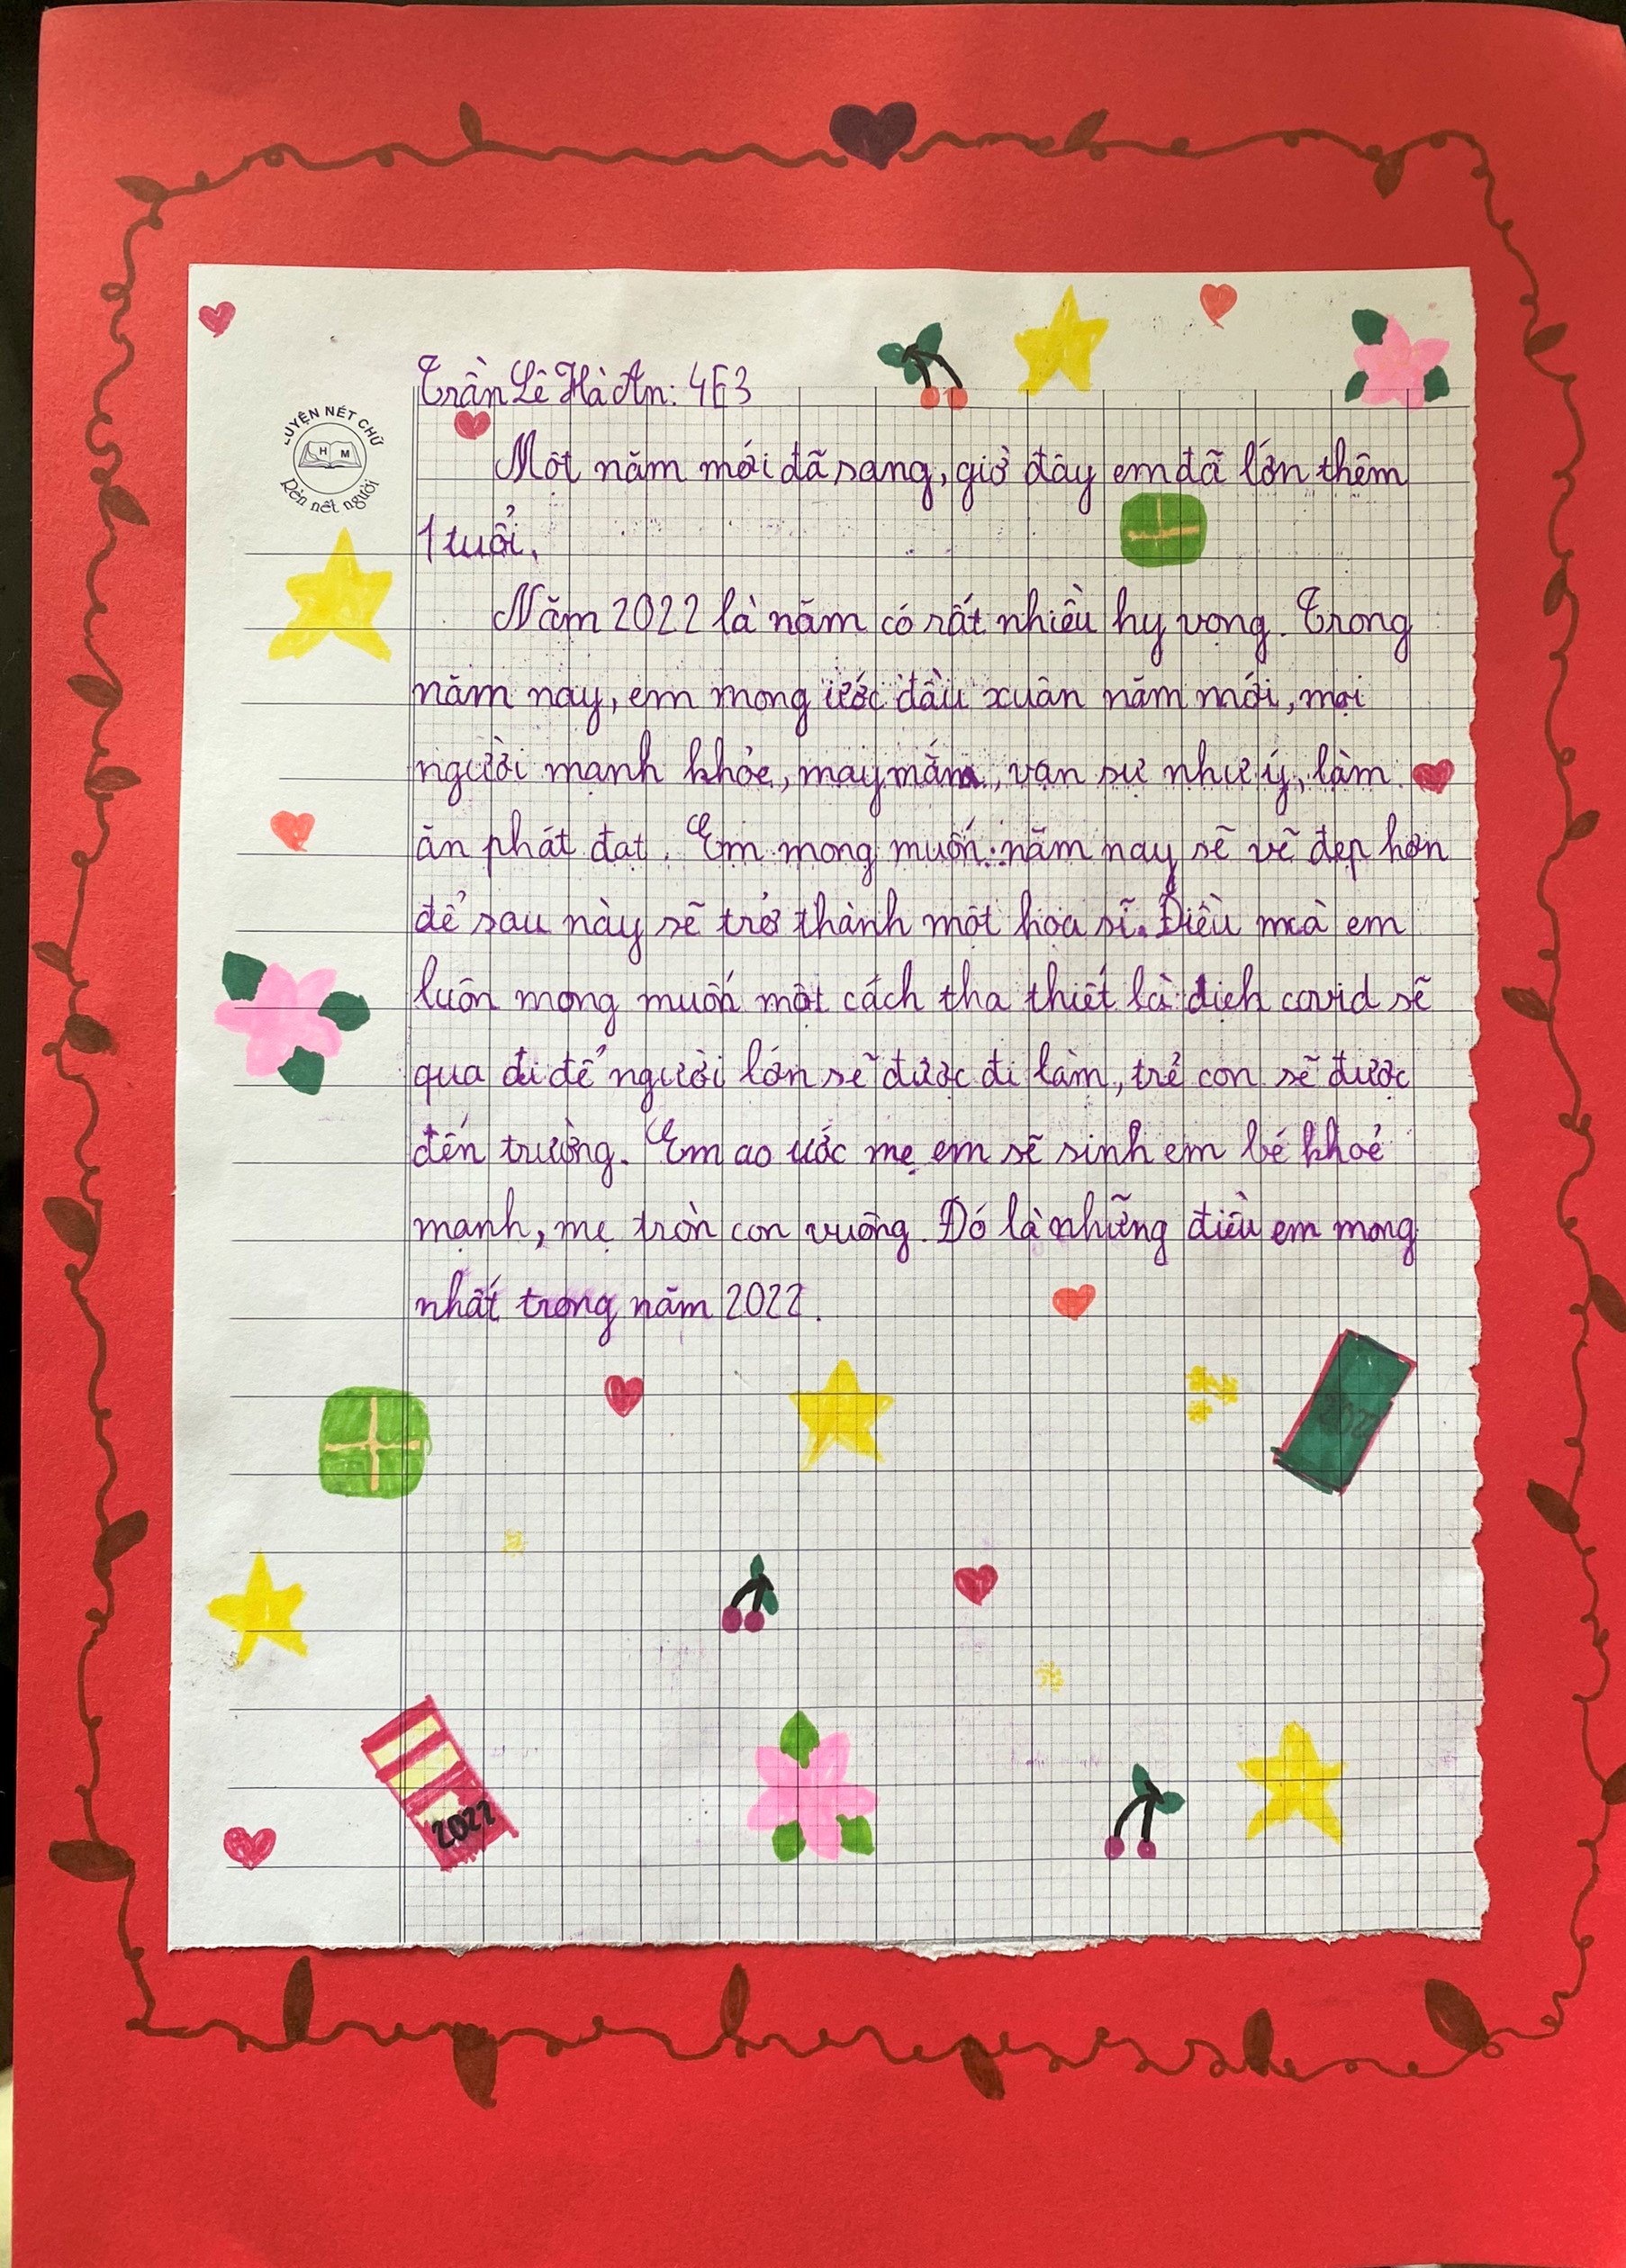 Trần Lê Hà An: 4E3
LUYỆN NÉT CHỮ
H M
Rèn nết người
Một năm mới đã sang, giờ đây em đã lớn thêm
1 tuổi.
Năm 2022 là năm có rất nhiều hy vọng. Trong
năm nay, em mong ước đầu xuân năm mới, mọi
người mạnh khỏe, may mắn, vạn sự như ý, làm
ăn phát đạt. Em mong muốn năm nay sẽ vẽ đẹp hơn
để sau này sẽ trở thành một họa sĩ. Điều mà em
luôn mong muốn một cách tha thiết là dịch covid sẽ
qua đi để người lớn sẽ được đi làm, trẻ con sẽ được
đến trường. Em ao ước mẹ em sẽ sinh em bé khoẻ
mạnh, mẹ tròn con vuông. Đó là những điều em mong
nhất trong năm 2022.
2022
2022